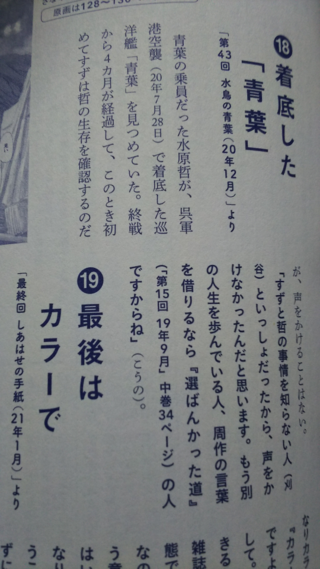 原画は128〜130
⑱着底した
「青葉」
「第43回 水鳥の青葉(20年12月)」より
青葉の乗員だった水原哲が、呉軍
港空襲(20年7月28日)で着底した巡
洋艦「青葉」を見つめていた。終戦
から4カ月が経過して、このとき初
めてすずは哲の生存を確認するのだ
が、声をかけることはない。
「すずと哲の事情を知らない人(刈
谷)といっしょだったから、声をか
けなかったんだと思います。もう別
の人生を歩んでいる人、周作の言葉
を借りるなら『選ばんかった道』
(「第15回 19年9月」中巻34ページ)の人
ですからね」(こうの)。
⑲最後は
カラーで
「最終回 しあはせの手紙(21年1月)」より
なりカラ
『カラ
ですよ
して。
きる
雑誌
態で
なの
う意
はい
なり
うこ
ずに